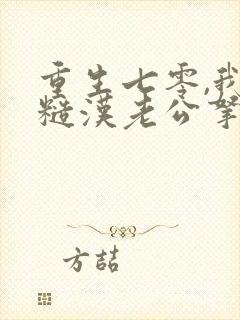 重生七零,我
糙漢老公掌
方喆